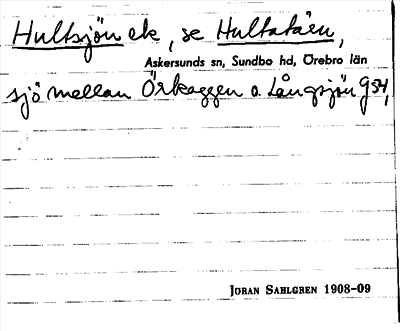 Hultsjön ek, se Hultatåen,
Askersunds sn, Sundbo hd, Örebro län
sjö mellan Örkaggen o. Långsjön G54,
JÖRAN SAHLGREN 1908-09